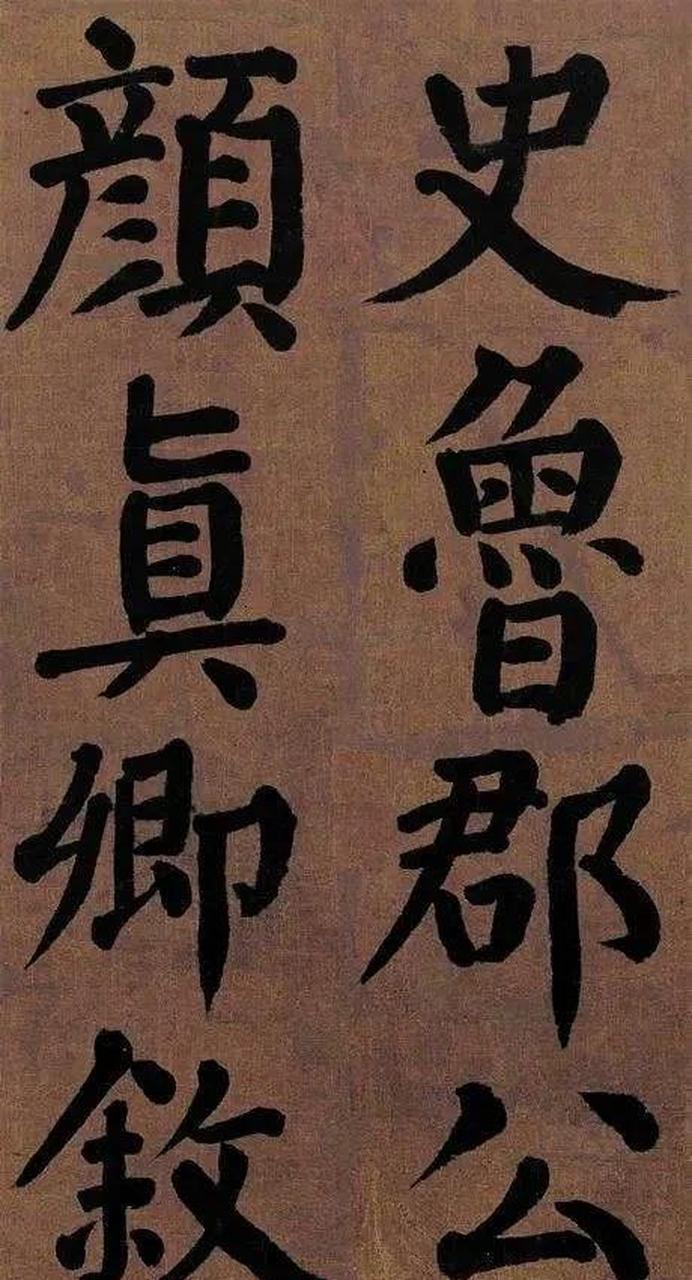 史魯郡公
顏真卿敘